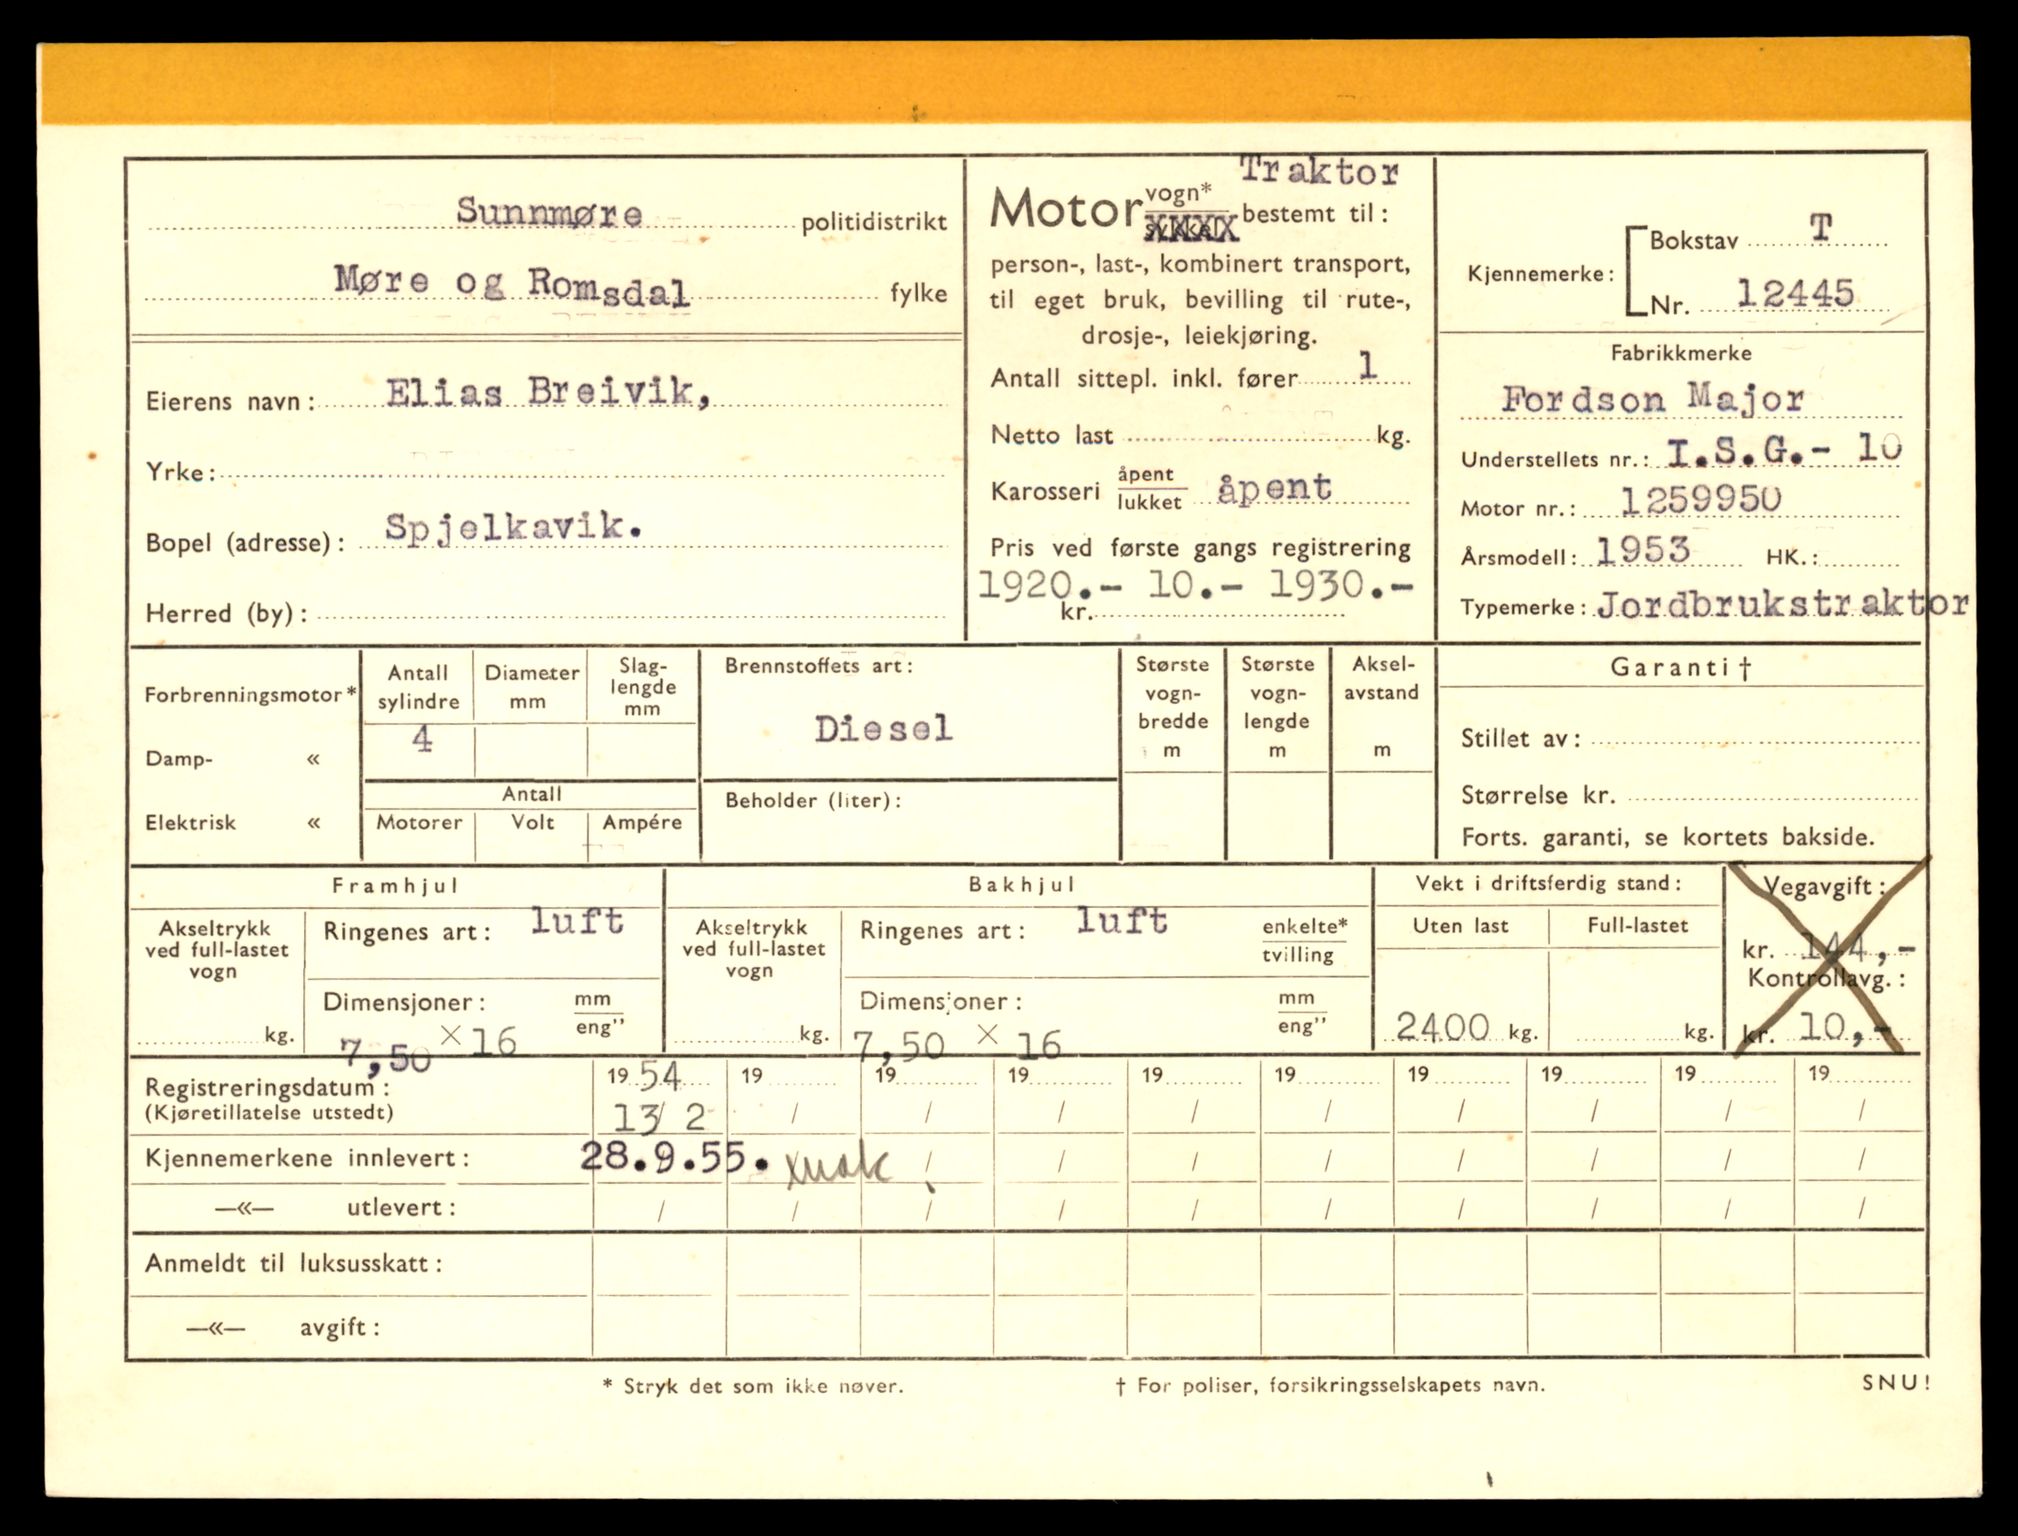 Sunnmøre politidistrikt
Møre og Romsdal fylke
Eierens navn: Elias Breivik,
Yrke:
Bopel (adresse): Spjelkavik.
Herred (by):
Traktor
Motor vogn* sykkel bestemt til:
person-, last-, kombinert transport,
til eget bruk, bevilling til rute-,
drosje-, leiekjøring.
Antall sittepl. inkl. fører 1
Netto last kg.
Karosseri åpent lukket åpent
Pris ved første gangs registrering
1920.- 10.- 1930.-
kr.
Kjennemerke: Bokstav T
Nr. 12445
Fabrikkmerke
Fordson Major
Understellets nr.: I.S.G.- 10
Motor nr.: 1259950
Årsmodell: 1953 HK.:
Typemerke: Jordbrukstraktor
Forbrenningsmotor*
Damp- «
Elektrisk «
Antall sylindre
4
Diameter mm
Slag-lengde mm
Antall
Motorer Volt Ampére
Brennstoffets art:
Diesel
Beholder (liter):
Største vogn-bredde m
Største vogn-lengde m
Aksel-avstand m
Garanti †
Stillet av:
Størrelse kr.
Forts. garanti, se kortets bakside.
Framhjul
Akseltrykk ved full-lastet vogn
kg.
Ringenes art: luft
Dimensjoner: mm eng”
7,50 × 16
Bakhjul
Akseltrykk ved full-lastet vogn
kg.
Ringenes art: luft enkelte* tvilling
Dimensjoner: mm eng”
7,50 × 16
Vekt i driftsferdig stand:
Uten last Full-lastet
2400 kg. kg.
Vegavgift:
kr. 144,-
Kontrollavg.:
kr. 10,-
Registreringsdatum: 19 54 19 19 19 19 19 19 19 19 19
(Kjøretillatelse utstedt) 13/ 2 / / / / / / / / /
Kjennemerkene innlevert: 28.9.55. / / / / / / / /
—«— utlevert: / / / / / / / / / /
Anmeldt til luksusskatt:
—«— avgift:
* Stryk det som ikke nøver. † For poliser, forsikringsselskapets navn. SNU!